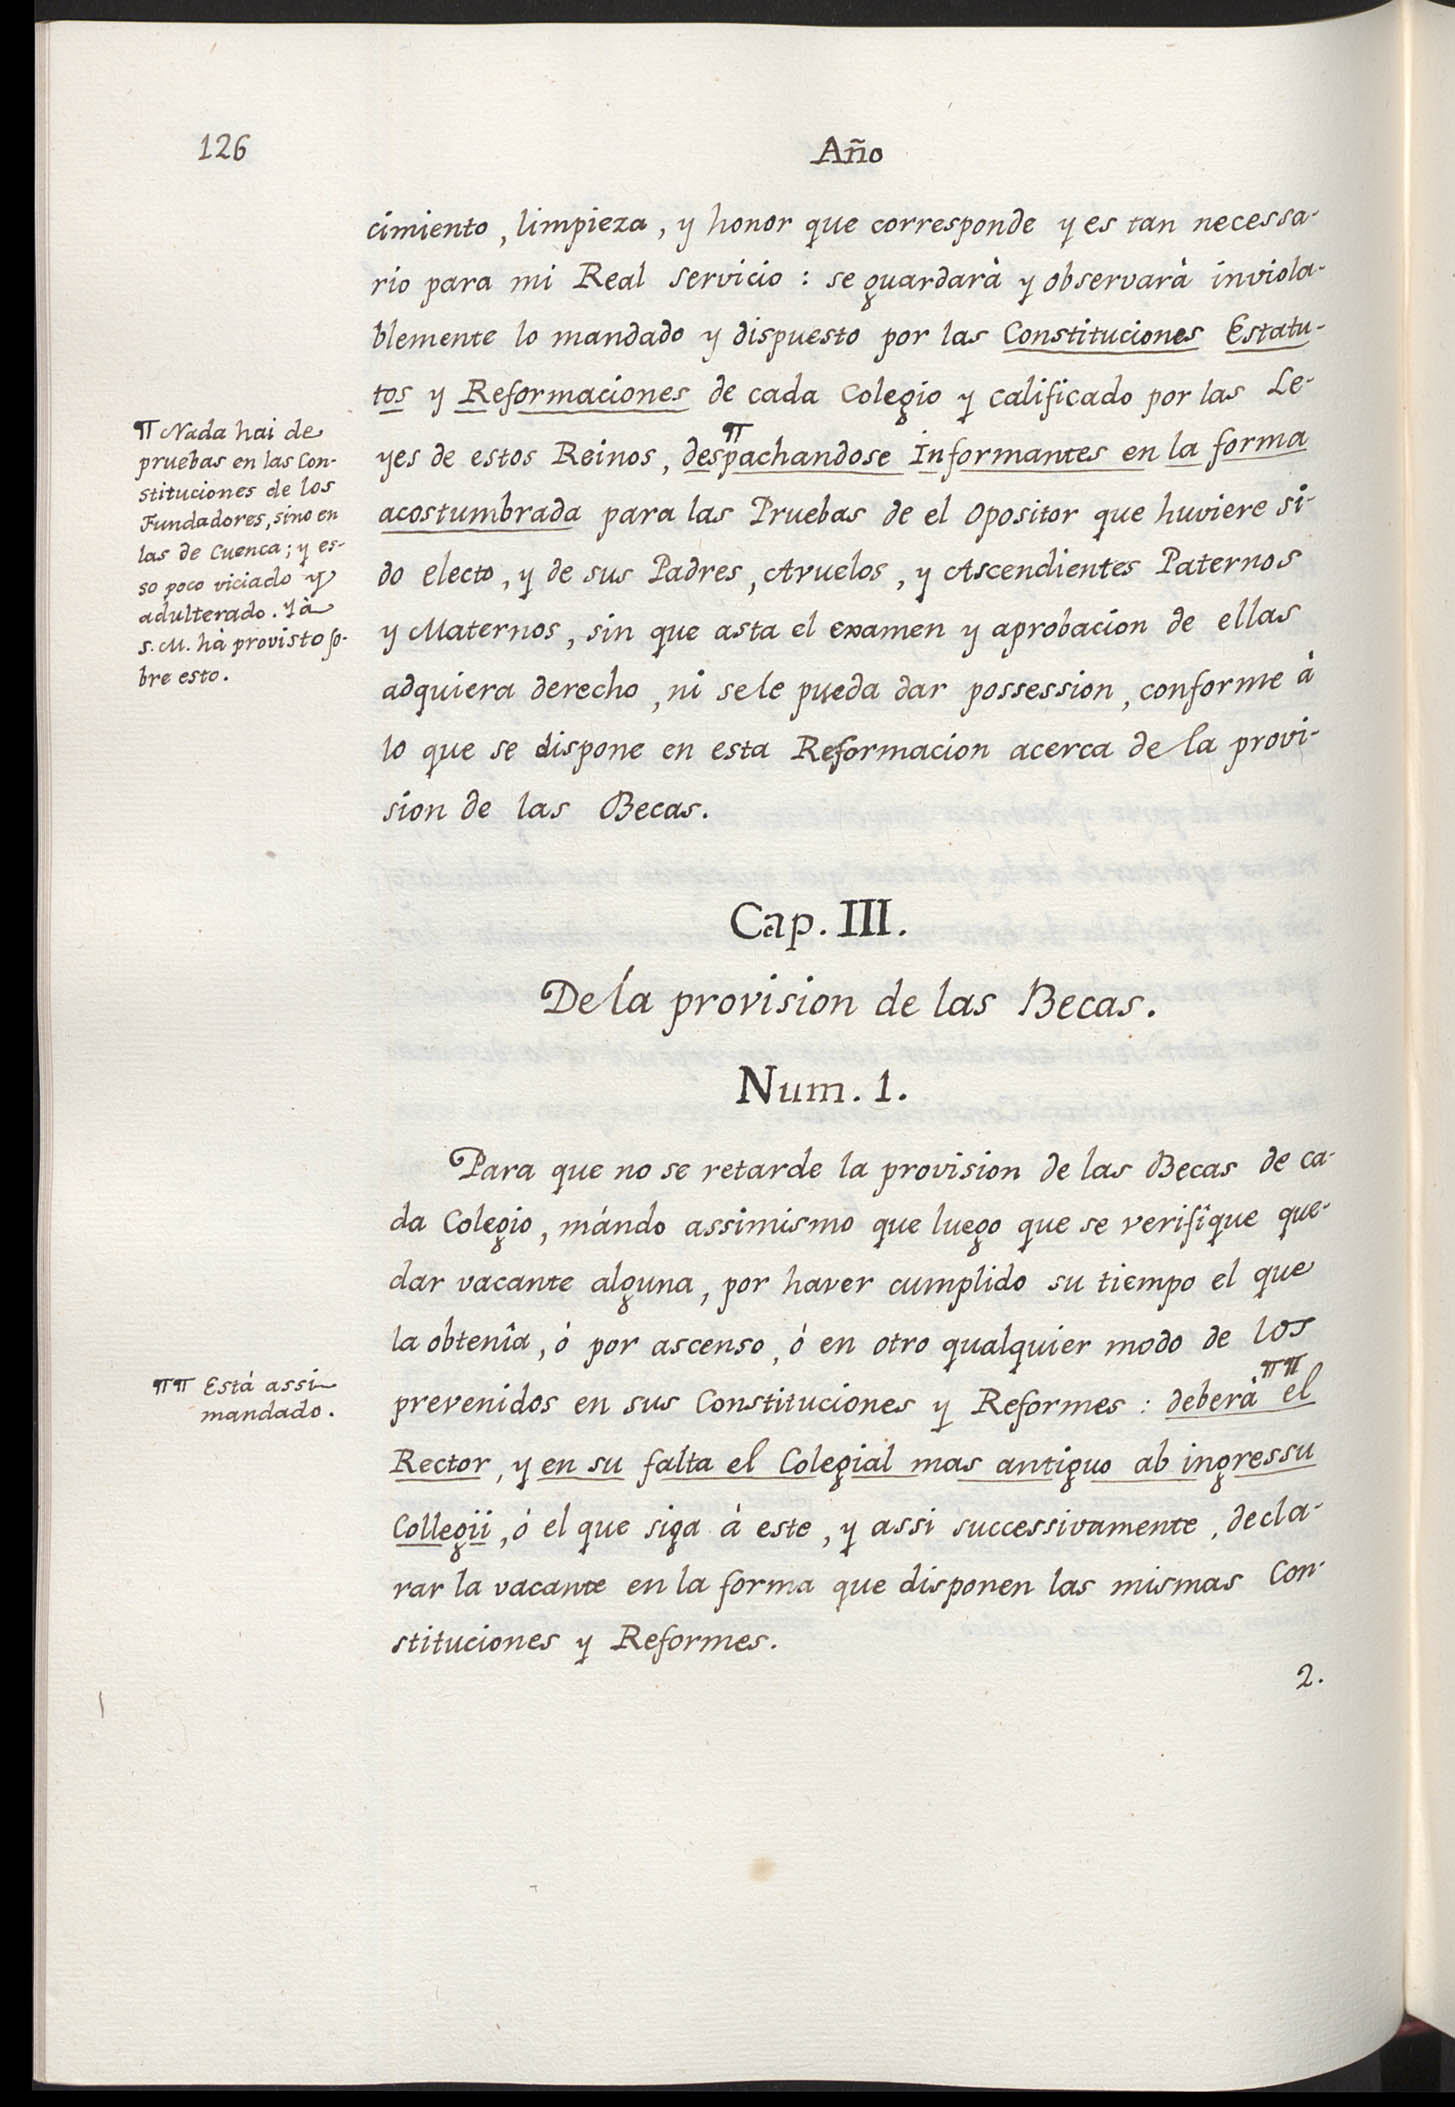 126
Año
cimiento, limpieza, y honor que corresponde y es tan necessa-
rio para mi Real servicio: se guardarà y observarà inviola-
blemente lo mandado y dispuesto por las Constituciones Estatu-
tos y Reformaciones de cada Colegio y calificado por las Le-
yes de estos Reinos, despachandose Informantes en la forma
acostumbrada para las Pruebas de el Opositor que huviere si-
do electo, y de sus Padres, Avuelos, y Ascendientes Paternos
y Maternos, sin que asta el examen y aprobacion de ellas
adquiera derecho, ni sele pueda dar possession, conforme à
lo que se dispone en esta Reformacion acerca de la provi-
sion de las Becas.
¶ Nada hai de
pruebas en las Con-
stituciones de los
Fundadores, sino en
las de Cuenca; y es-
so poco viciado y
adulterado. Yà
S. M. hà provisto so-
bre esto.
Cap. III.
De la provision de las Becas.
Num. 1.
Para que no se retarde la provision de las Becas de ca-
da Colegio, mándo assimismo que luego que se verifique que-
dar vacante alguna, por haver cumplido su tiempo el que
la obtenîa, ó por ascenso, ó en otro qualquier modo de los
prevenidos en sus Constituciones y Reformes: deberà ¶¶ el
Rector, y en su falta el Colegial mas antiguo ab ingressu
Collegii, ó el que siga à este, y assi successivamente, decla-
rar la vacante en la forma que disponen las mismas Con-
stituciones y Reformes.
¶¶ Está assi
mandado.
2.